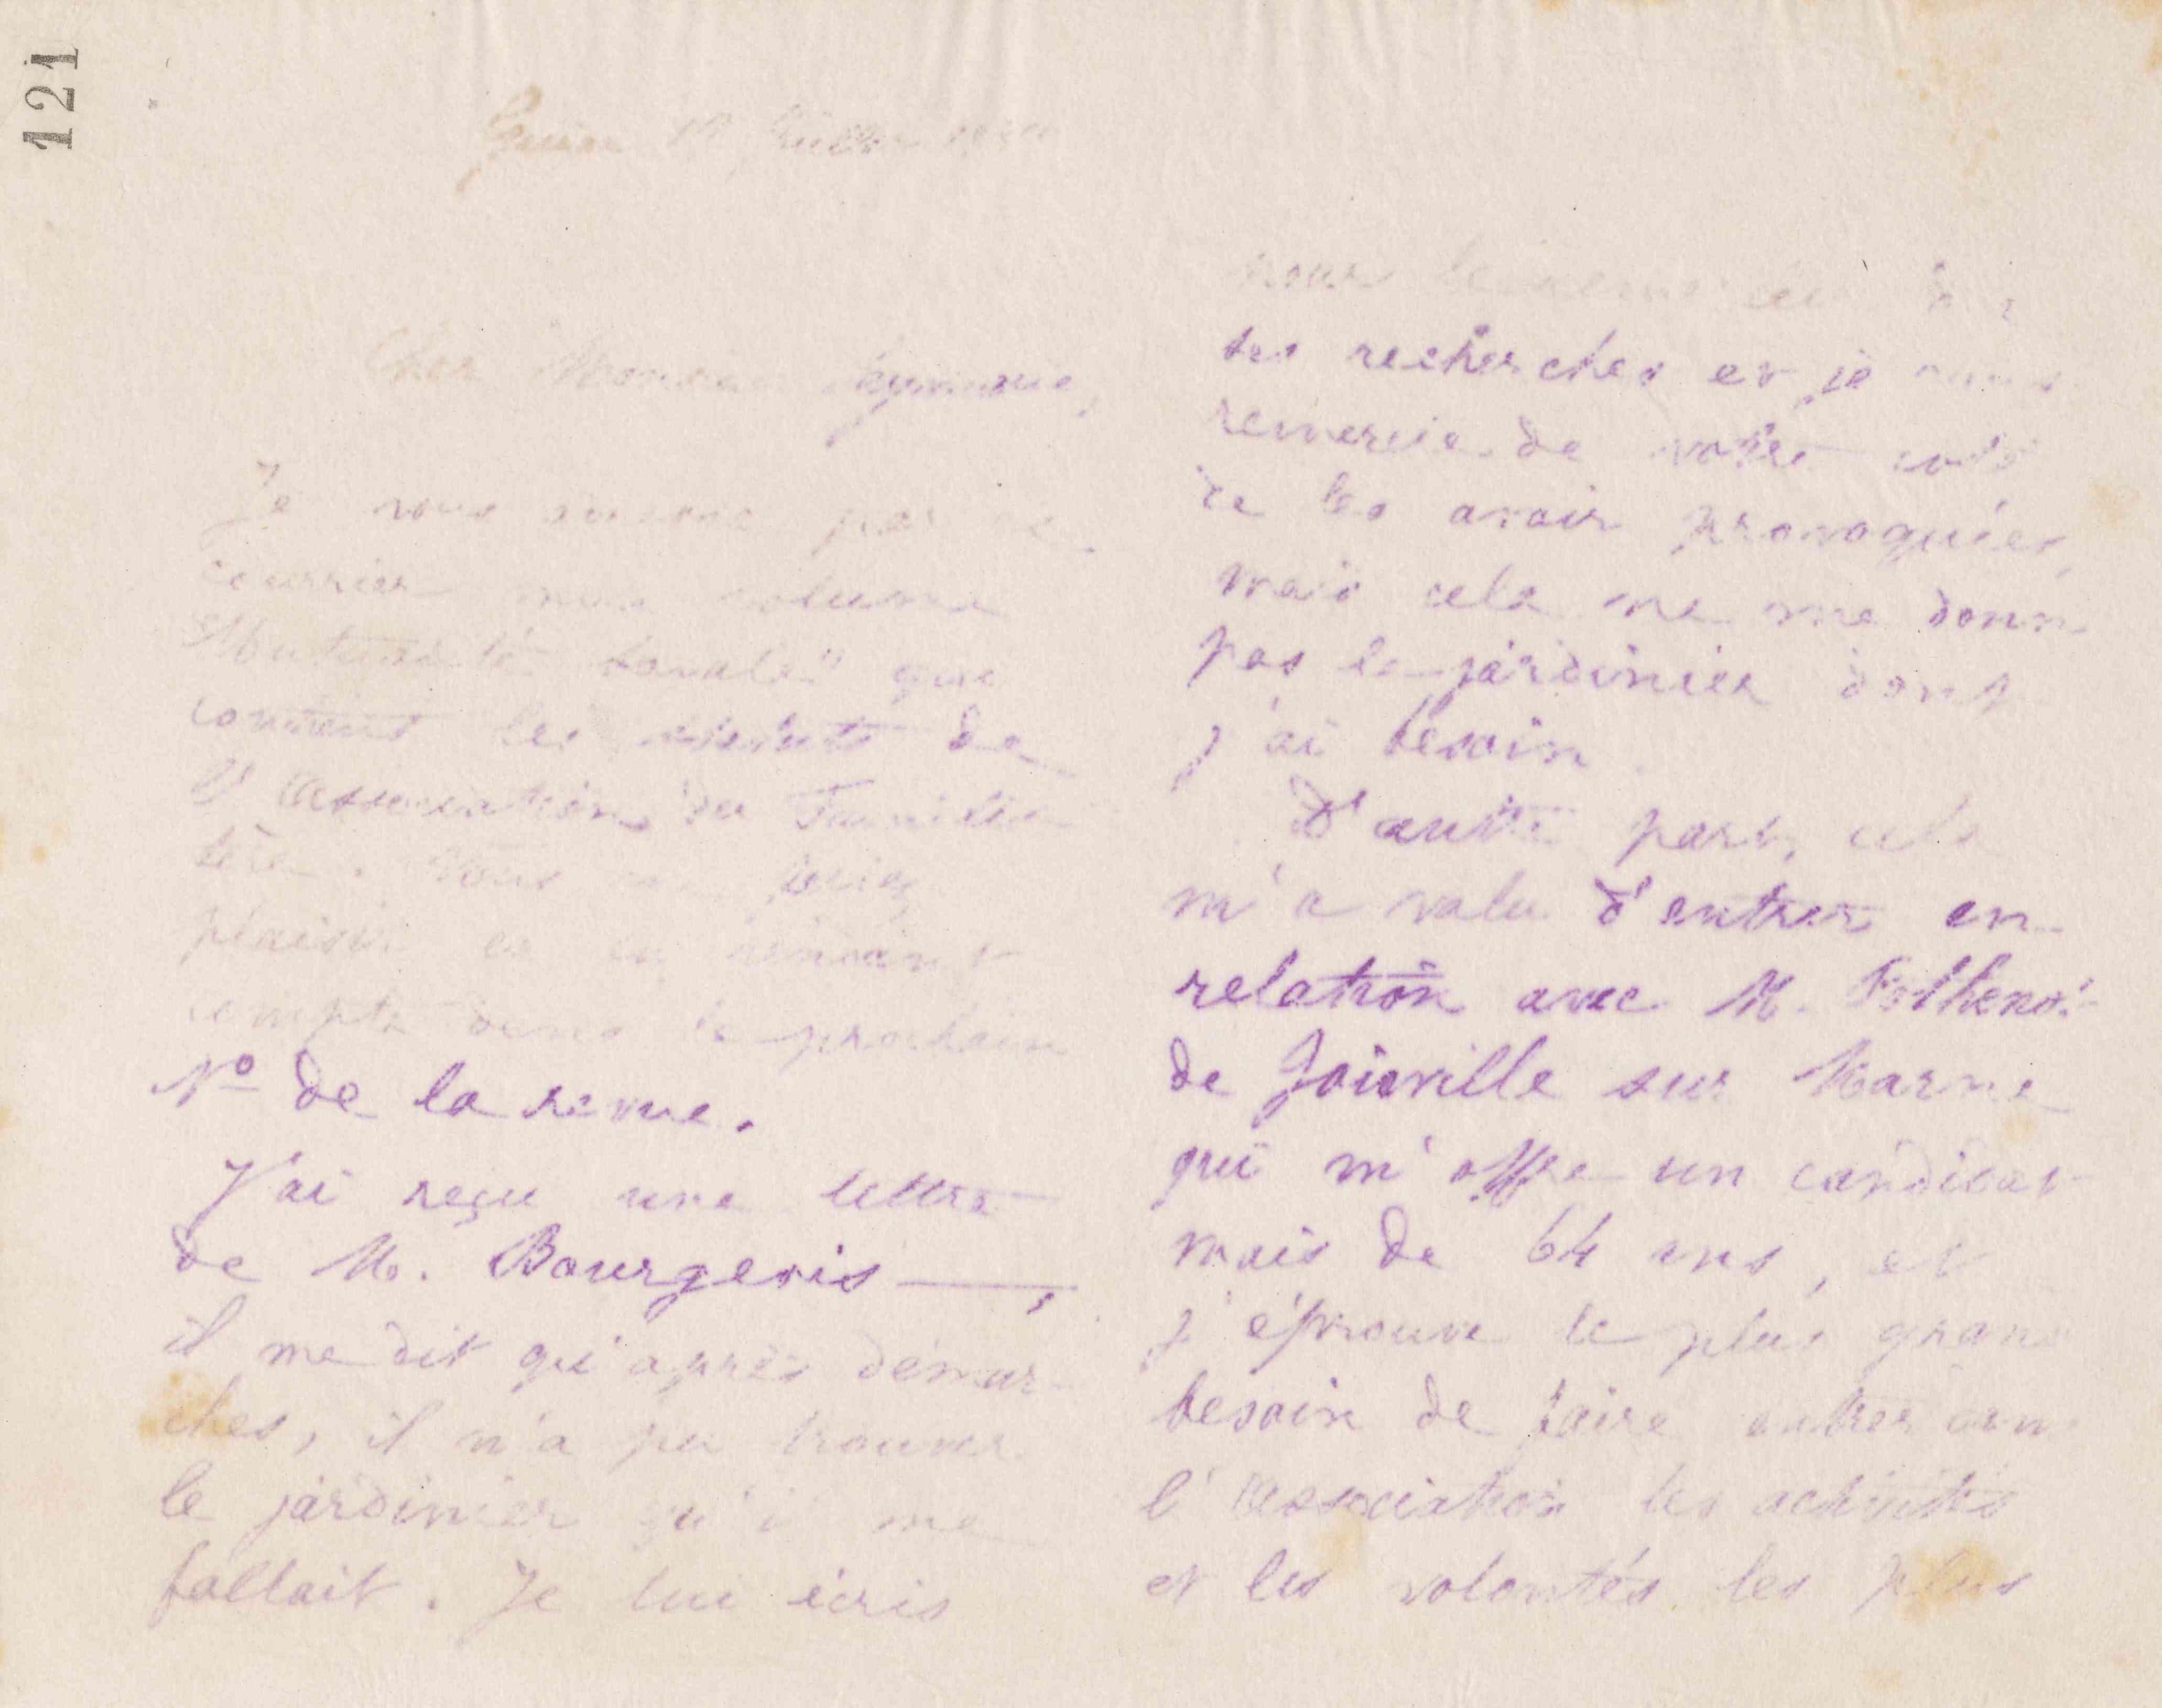 121
Guise
Cher Monsieur Leymarie,
Je vous envoie par ce
courrier mon volume
"Mutualité sociale" que
contient les statuts de
l'association du Familis-
tère. Vous me feriez
plaisir en en rendant
compte dans le prochain
Nº de la revue.
J'ai reçu une lettre
de M. Bourgeois —,
il me dit qu'après démar-
ches, il n'a pu trouver
le jardinier qu'il me
fallait. Je lui écris
pour le remercier de
ses recherches et je vous
remercie de votre côté
de les avoir provoquées,
mais cela ne me donne
pas le jardinier dont
j'ai besoin.
D'autre part, cela
m'a valu d'entrer en
relation avec M.
de Joinville sur Marne
qui m'offre un candidat
mais de 64 ans, et
j'éprouve le plus grand
besoin de faire entrer dans
l'association les activités
et les volontés les plus